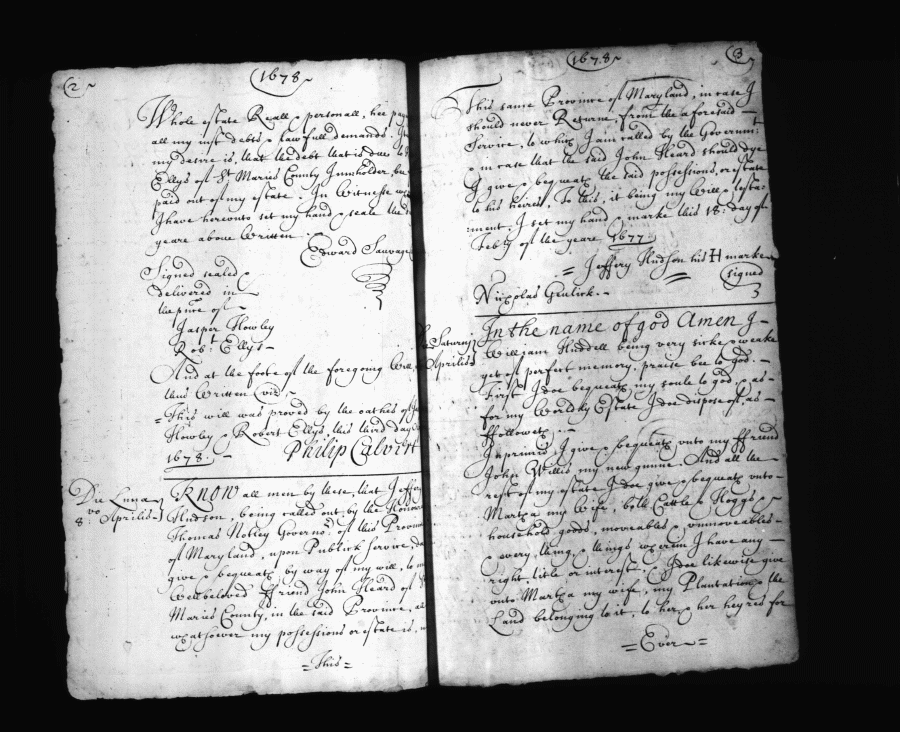 2
1678
Whole estate Reall & personall, hee pay
all my just debts & lawfull demands.
my desire is, that the debt that is due to
Ellys of St Maries County Innholder, bee
paid out of my estate. In Witnesse
I have hereunto set my hand & seale the
yeare above Written.
Edward Savage
Signed sealed
delivered in
the psence of
Jasper Howley
Robt. Ellys
And at the foote of the foregoing Will
thus Written (viz)
This will was proved by the oathes of
Howley & Robert Ellys this third day
1678.
Philip Calvert
Die Lunæ
8:vo Aprilis
Know all men by these, that Jeffery
Hudson, being called out, by the Honorble
Thomas Notley Governor. of this Province
of Maryland, upon Publick Service, doe
give & bequeath by way of my will, to my
Welbeloved ffriend John Heard of St
Maries County, in the said Province,
whatsoever my possessions or estate is, in
=This=
3
1678
This same Province of Maryland, in case I
should never Returne, from the aforesaid
Service, to which I am called by the Governmt:
& in case that the said John Heard should dye
I give & bequeath the said possessions, or estate
to his heires. To this, it being my Will & testa-
ment, I set my hand & marke this 18: day of
Febry of the yeare 1677.
= Jeffery Hudson his H marke
signed
Nicholas
Saturni
Aprilis
In the name of god Amen I
William Ruddell being very sicke & weake
yet of perfect memory, praise bee to god.
First I doe bequeath my soule to god, & as
for my Worldly Estate I doe dispose of, as
ffolloweth.
Inprimis I give & bequeath unto my ffriend
John Willis my new gunne. And all the
rest of my estate I doe give & bequeath unto
Martha my Wife, both Cattle & Hoggs &
household goods, moveables & unmoveables
& every thing & things wherein I have any
right, title or interest. I doe likewise give
unto Martha my wife, my Plantation & the
Land belonging to it, to her & her heyres for
=Ever=